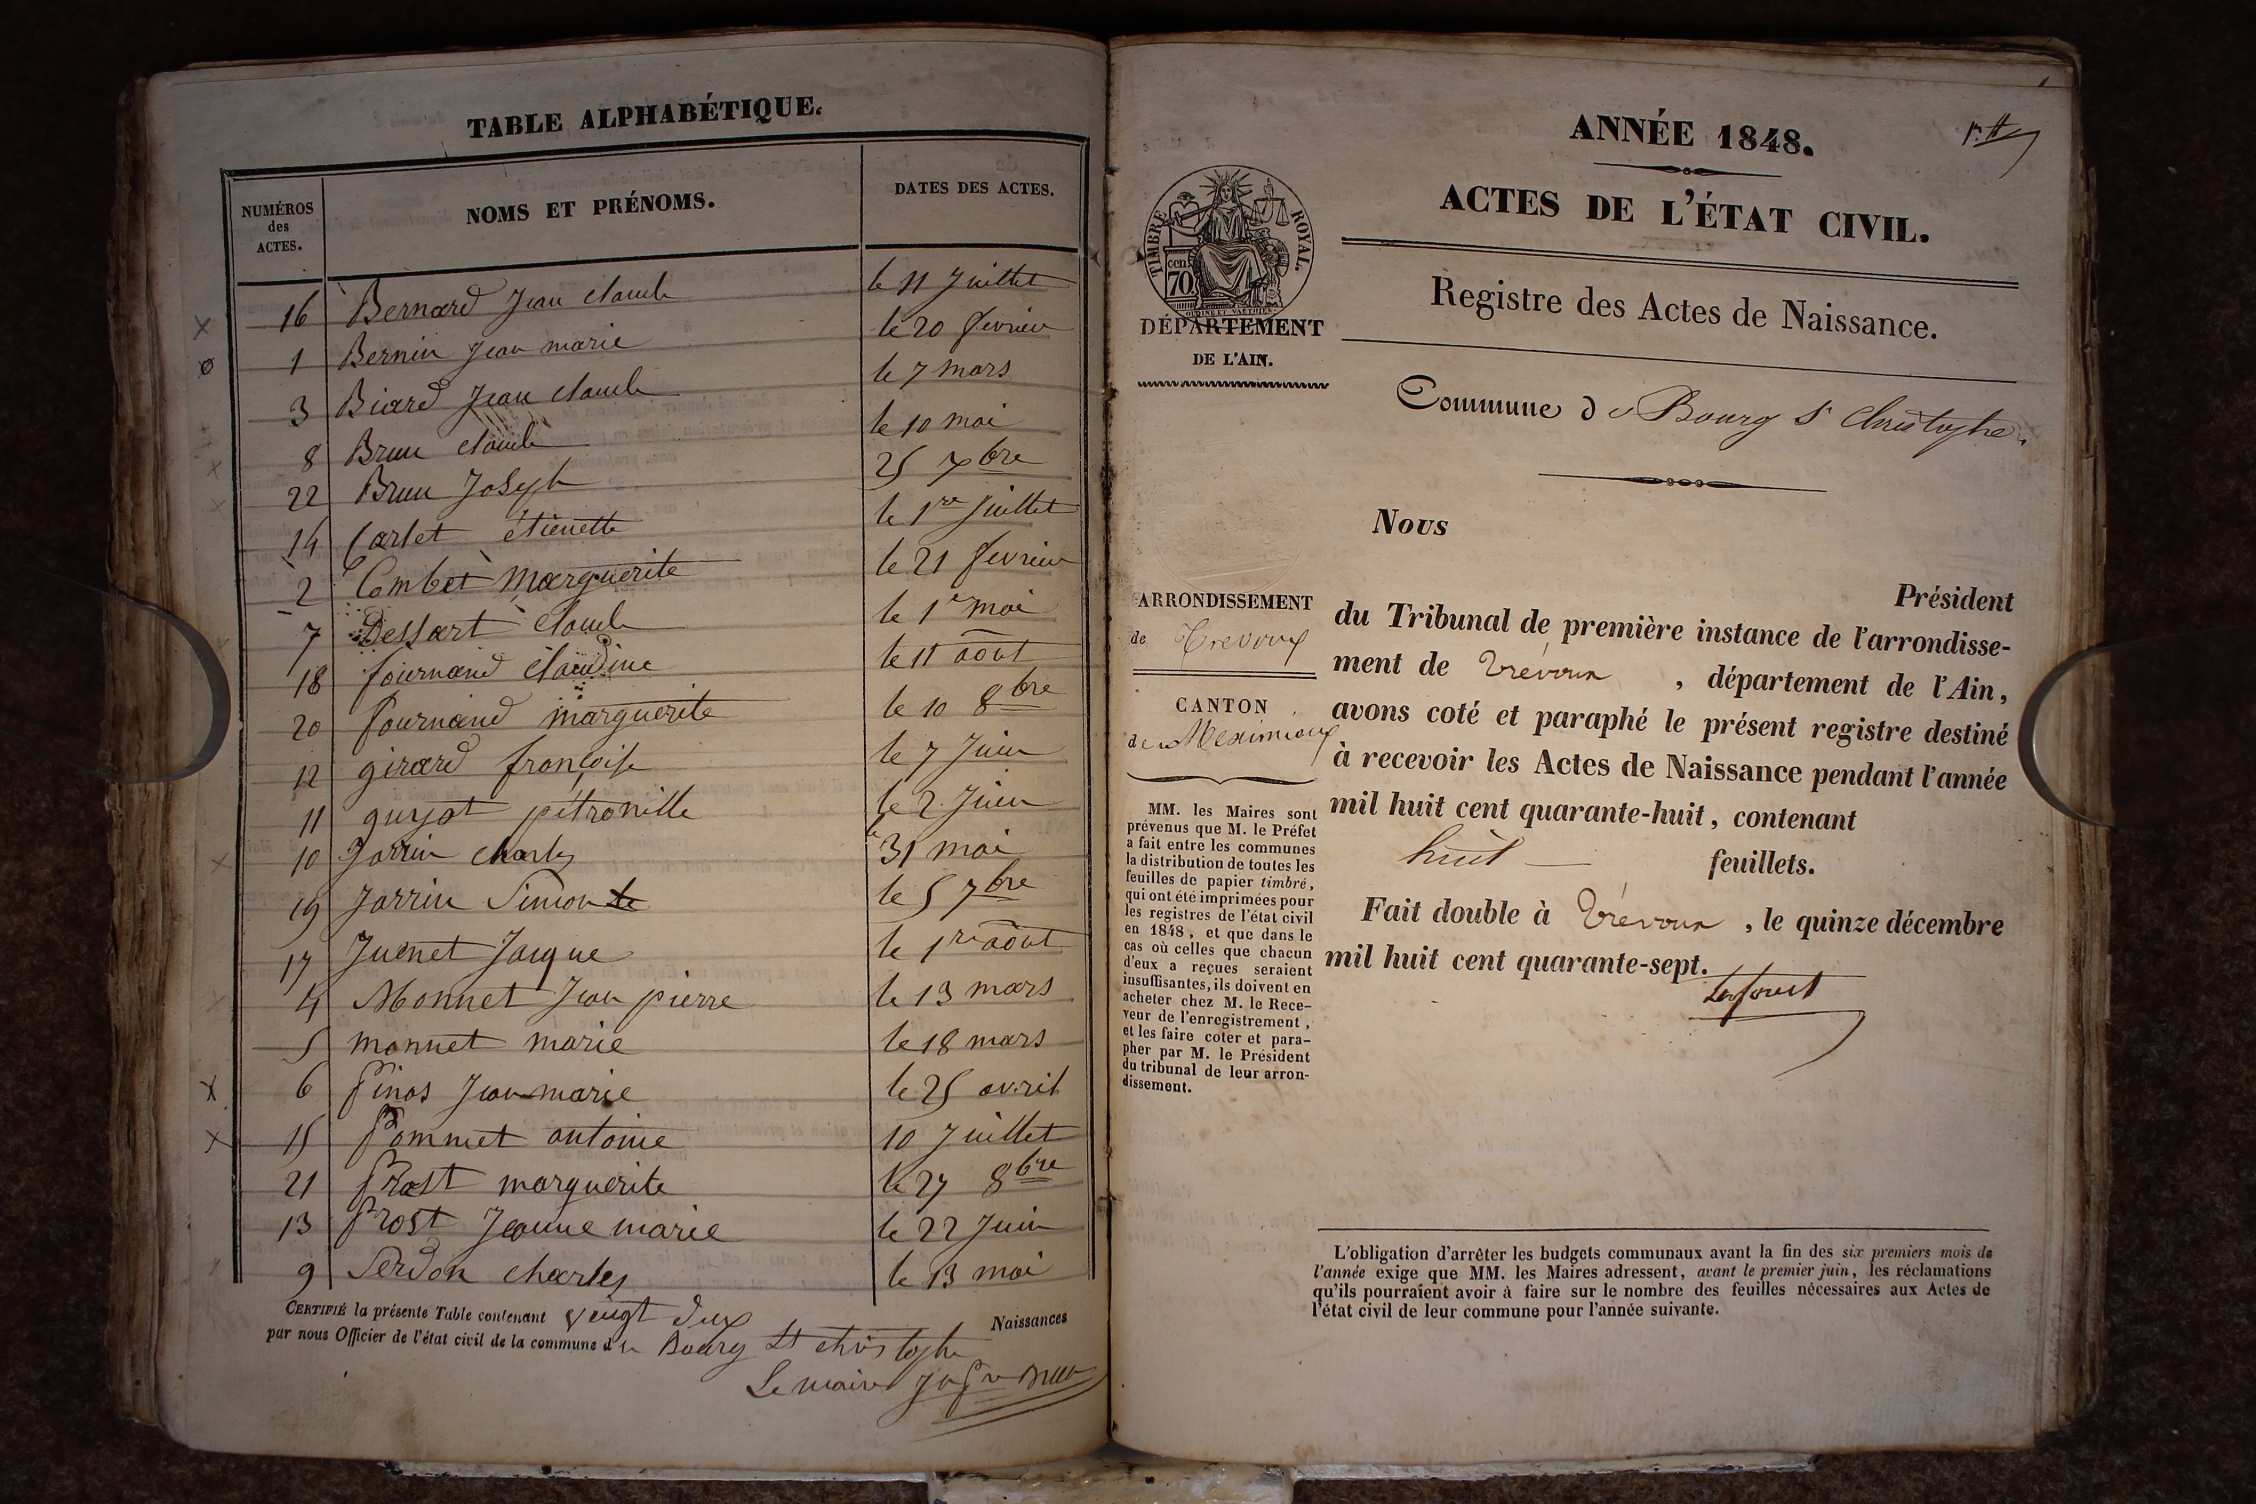 TABLE ALPHABÉTIQUE.
NUMÉROS
des
ACTES.
NOMS ET PRÉNOMS.
DATES DES ACTES.
16 Bernard Jean claude le 11 Juillet
1 Bernin Jean marie le 20 fevrier
3 Biard Jean claude le 7 mars
8 Brun claude le 10 mai
22 Brun Joseph 25 xbre
14 Carlet étienette le 1re Juillet
2 Combet Marguerite le 21 fevrier
7 Dessart Claude le 1e mai
18 fournand Claudine le 11 aout
20 fournand marguerite le 10 8bre
12 girard françoise le 7 Juin
11 guyot pétronille le 2 Juin
10 Jarrin charles 31 mai
19 Jarrin Simon le 5 7bre
17 Juenet Jacque le 1re aout
4 Monnet Jean pierre le 13 mars
5 monnet marie le 18 mars
6 pinos Jean marie le 25 avril
15 pommet antoine 10 Juillet
21 prost marguerite le 27 8bre
13 prost Jeanne marie le 22 Juin
9 Serdon charles le 13 mai
CERTIFIÉ la présente Table contenant veingt deux Naissances
par nous Officier de l'état civil de la commune de Bourg St christophe
Le maire
1
ANNÉE 1848.
ACTES DE L'ÉTAT CIVIL.
TIMBRE ROYAL.
cen.
70.
DÉPARTEMENT
DE L'AIN.
Registre des Actes de Naissance.
Commune de Bourg St Christophe.
Nous
Président
ARRONDISSEMENT
de Trevoux
CANTON
de Meximieux
MM. les Maires sont
prévenus que M. le Préfet
a fait entre les communes
la distribution de toutes les
feuilles de papier timbré,
qui ont été imprimées pour
les registres de l'état civil
en 1848, et que dans le
cas où celles que chacun
d'eux a reçues seraient
insuffisantes, ils doivent en
acheter chez M. le Rece-
veur de l'enregistrement,
et les faire coter et para-
pher par M. le Président
du tribunal de leur arron-
dissement.
du Tribunal de première instance de l'arrondisse-
ment de Trévoux , département de l'Ain,
avons coté et paraphé le présent registre destiné
à recevoir les Actes de Naissance pendant l'année
mil huit cent quarante-huit, contenant
huit feuillets.
Fait double à Trévoux , le quinze décembre
mil huit cent quarante-sept.
L'obligation d'arrêter les budgets communaux avant la fin des six premiers mois de
l'année exige que MM. les Maires adressent, avant le premier juin, les réclamations
qu'ils pourraient avoir à faire sur le nombre des feuilles nécessaires aux Actes de
l'état civil de leur commune pour l'année suivante.